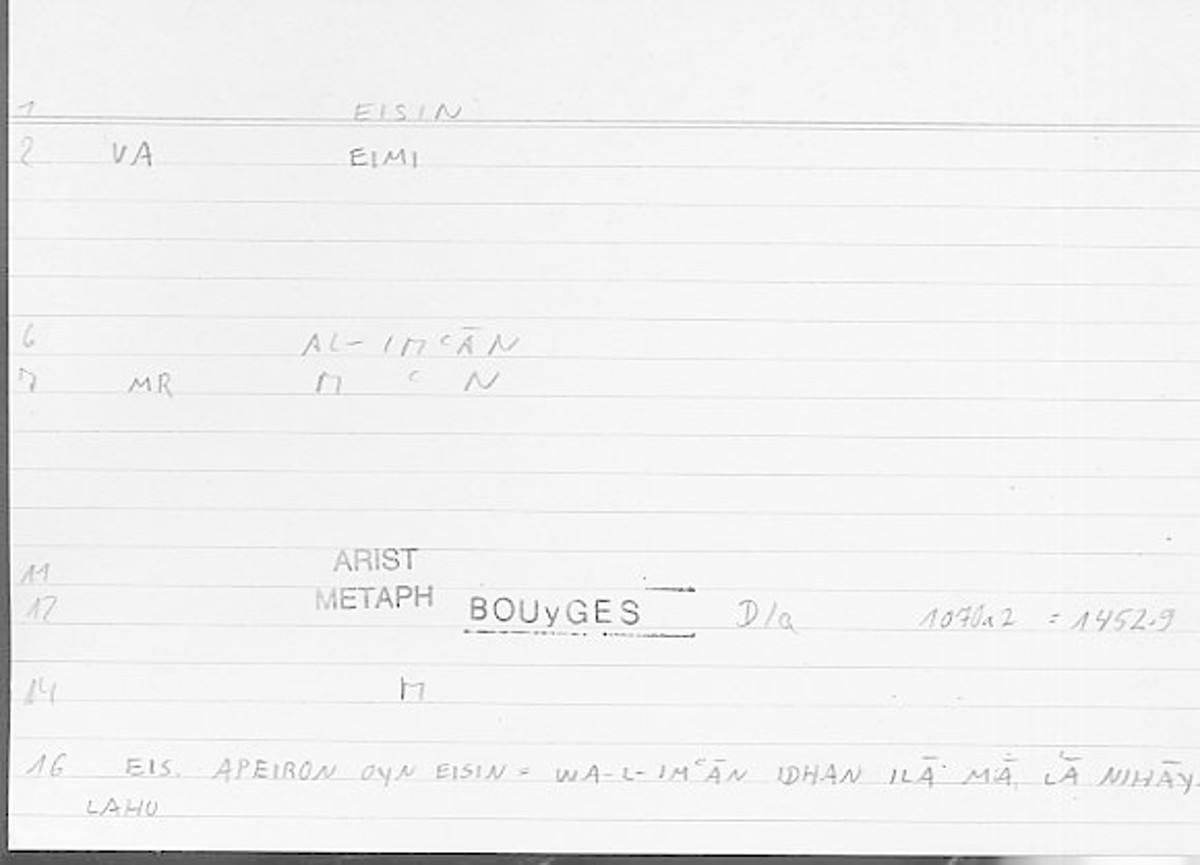 1 EISIN
2 VA EIMI
6 AL-IMʿĀN
7 MR M ʿ N
11 ARIST
12 METAPH BOUyGES D/a 1070a2 = 1452.9
14 M
16 EIS. APEIRON OYN EISIN = WA-L-IMʿĀN IDHAN ILĀ MĀ LĀ NIHĀY
LAHU